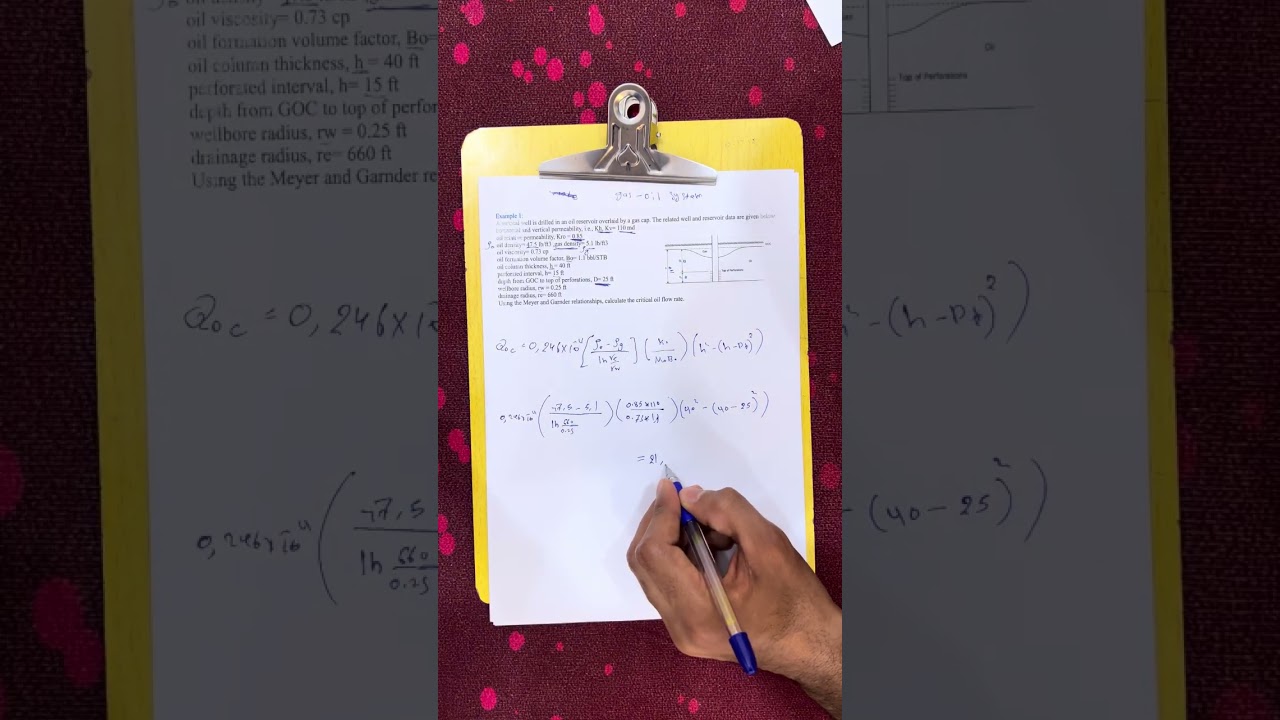 gas-oil system
Example 1:
A vertical well is drilled in an oil reservoir overlaid by a gas cap. The related well and reservoir data are given below:
horizontal and vertical permeability, i.e., Kh, Kv= 110 md
oil relative permeability, Kro = 0.85
oil density= 47.5 lb/ft3 ,gas density= 5.1 lb/ft3
oil viscosity= 0.73 cp
oil formation volume factor, Bo= 1.1 bbl/STB
oil column thickness, h = 40 ft
perforated interval, h= 15 ft
depth from GOC to top of perforations, D= 25 ft
wellbore radius, rw = 0.25 ft
drainage radius, re= 660 ft
Using the Meyer and Garnder relationships, calculate the critical oil flow rate.
Top of Perforations
Qoc = 0,246×10⁻⁴ [ρo - ρg / ln re/rw] (Ko / MoBo) (h² - (h - Dt)²)
0,246×10⁻⁴ (47,5 - 5,1 / ln 660/0.25) (0.85*110 / 0.73*1,1) (40² - (40 - 25)²)
= 21,
oil viscosity= 0.73 cp
oil formation volume factor, Bo=
oil column thickness, h = 40 ft
perforated interval, h= 15 ft
depth from GOC to top of perfor
wellbore radius, rw = 0.25 ft
drainage radius, re= 660 ft
Using the Meyer and Garnder re
Qoc = 0,246×10
0,246×10⁻⁴ (47,5 / ln 660/0.25
Oil
Top of Perforations
- (h - Dt)²)
- (40 - 25)²)